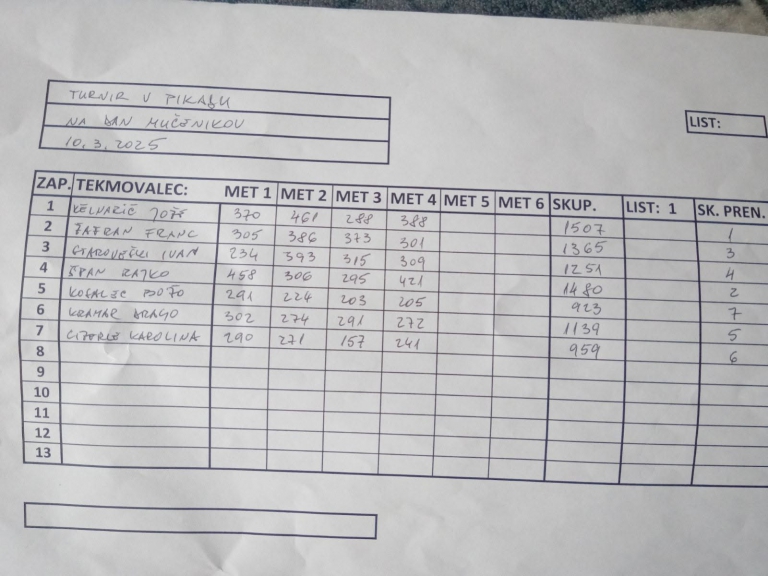 TURNIR V PIKADU
NA DAN MUČENIKOV
10.3.2025
LIST:
ZAP. TEKMOVALEC: MET 1 MET 2 MET 3 MET 4 MET 5 MET 6 SKUP. LIST: 1 SK. PREN.
1 JOŽE 370 461 288 388 1507 1
2 ŽAFRAN FRANC 305 386 373 301 1365 3
3 STAROVEŠKI IVAN 234 393 315 309 1251 4
4 ŠPAN RAJKO 458 306 295 421 1480 2
5 291 224 203 205 923 7
6 KRAMAR DRAGO 302 274 291 272 1139 5
7 KAROLINA 290 271 157 241 959 6
8
9
10
11
12
13